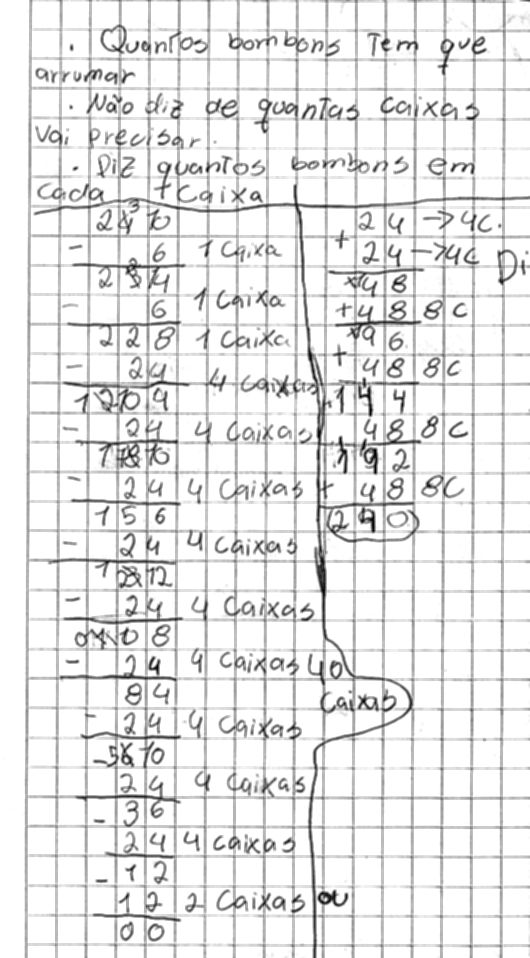 . Quantos bombons Tem que
arrumar
. Não diz de quantas caixas
Vai precisar.
. Diz quantos bombons em
cada caixa
240
- 6 1 Caixa
234
- 6 1 Caixa
228 1 Caixa
- 24 4 Caixas
204
- 24 4 Caixas
180
- 24 4 Caixas
156
- 24 4 Caixas
132
- 24 4 Caixas
108
- 24 4 Caixas
84
- 24 4 Caixas
- 60
24 4 Caixas
- 36
24 4 caixas
- 12
12 2 Caixas ou
00
40
Caixas
24 → 4C.
+ 24 → 4C
48
+ 48 8C
96
+ 48 8C
144
+ 48 8C
192
+ 48 8C
240
Di